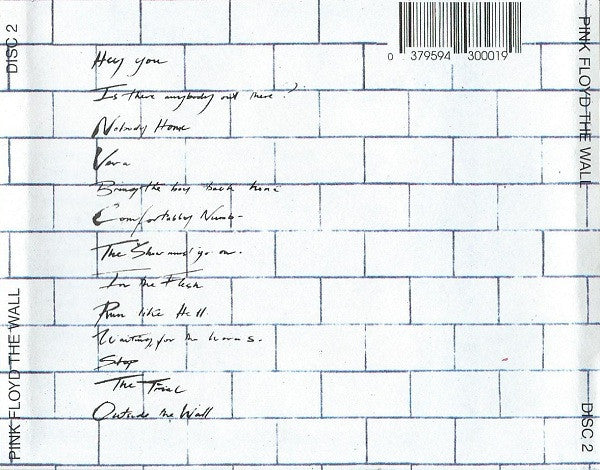 DISC 2
PINK FLOYD THE WALL
0 379594 300019
Hey you
Is there anybody out there?
Nobody Home
Vera
Bring the boys back home
Comfortably Numb
The Show must go on.
In The Flesh
Run like Hell
Waiting for the worms.
Stop
The Trial
Outside the Wall
PINK FLOYD THE WALL
DISC 2